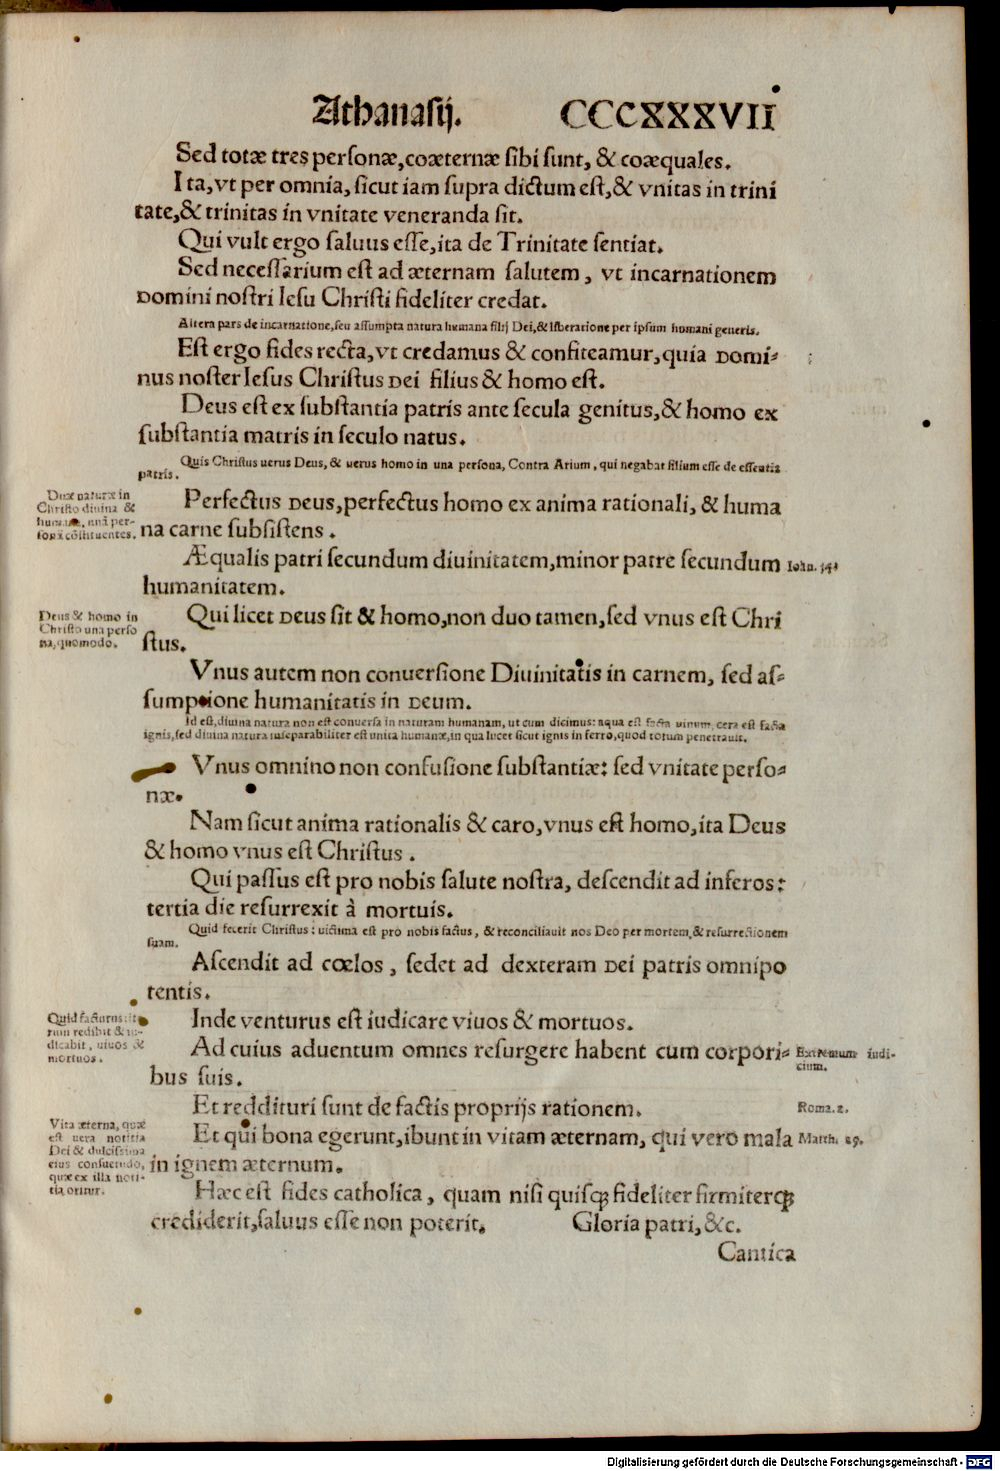 Athanasij. CCCXXXVII
Sed totæ tres personæ, coæternæ sibi sunt, & coæquales.
Ita, vt per omnia, sicut iam supra dictum est, & vnitas in trini
tate, & trinitas in vnitate veneranda sit.
Qui vult ergo saluus esse, ita de Trinitate sentiat.
Sed necessarium est ad æternam salutem, vt incarnationem
DOmini nostri Iesu Christi fideliter credat.
Altera pars de incarnatione, seu assumpta natura humana filij Dei, & liberatione per ipsum humani generis.
Est ergo fides recta, vt credamus & confiteamur, quia DOmi-
nus noster Iesus Christus DEi filius & homo est.
Deus est ex substantia patris ante secula genitus, & homo ex
substantia matris in seculo natus.
Quis Christus uerus Deus, & uerus homo in una persona, Contra Arium, qui negabat filium esse de essentia
patris.
Duæ naturæ in
Christo diuina &
humana, unā per-
sonā cōstituentes.
Perfectus DEus, perfectus homo ex anima rationali, & huma
na carne subsistens.
Æqualis patri secundum diuinitatem, minor patre secundum
humanitatem.
Ioan. 14.
Deus & homo in
Christo una perso
na, quomodo.
Qui licet DEus sit & homo, non duo tamen, sed vnus est Chri
stus.
Vnus autem non conuersione Diuinitatis in carnem, sed as-
sumptione humanitatis in DEum.
Id est, diuina natura non est conuersa in naturam humanam, ut cum dicimus: aqua est facta uinum, cera est facta
ignis, sed diuina natura inseparabiliter est unita humanæ, in qua lucet sicut ignis in ferro, quod totum penetrauit.
Vnus omnino non confusione substantiæ: sed vnitate perso-
næ.
Nam sicut anima rationalis & caro, vnus est homo, ita Deus
& homo vnus est Christus.
Qui passus est pro nobis salute nostra, descendit ad inferos:
tertia die resurrexit à mortuis.
Quid fecerit Christus: uictima est pro nobis factus, & reconciliauit nos Deo per mortem, & resurrectionem
suam.
Ascendit ad cœlos, sedet ad dexteram DEi patris omnipo
tentis.
Quid facturus: ite
rum redibit & iu-
dicabit, uiuos &
mortuos.
Inde venturus est iudicare viuos & mortuos.
Ad cuius aduentum omnes resurgere habent cum corpori-
bus suis.
Extremum iudi-
cium.
Et reddituri sunt de factis proprijs rationem.
Roma. 2.
Vita æterna, quæ
est uera notitia
Dei & dulcissima
eius consuetudo,
quæ ex illa noti-
tia oritur.
Et qui bona egerunt, ibunt in vitam æternam, qui vero mala
in ignem æternum.
Matth. 25.
Hæc est fides catholica, quam nisi quisqꝫ fideliter firmiterqꝫ
crediderit, saluus esse non poterit. Gloria patri, &c.
Cantica
Digitalisierung gefördert durch die Deutsche Forschungsgemeinschaft - DFG